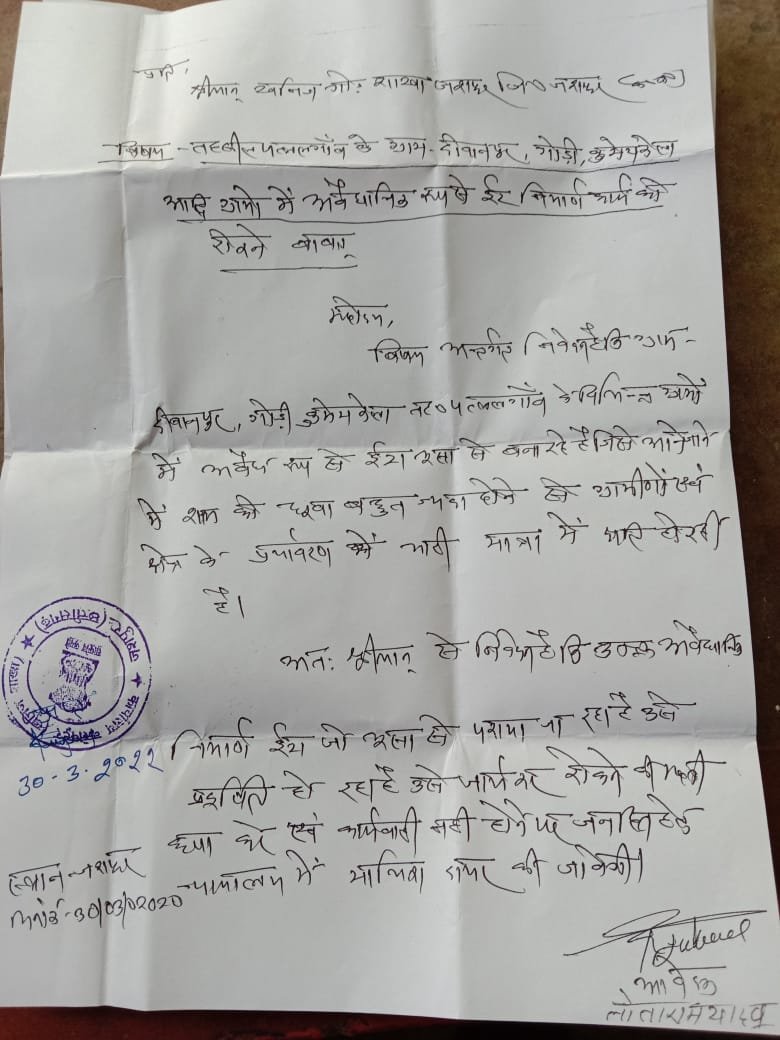 प्रति,
श्रीमान् खनिज शाखा जशपुर जि० जशपुर
विषय - तहसील पत्थलगाँव के ग्राम - दीवानपुर, गोडी, कुमेकेला
आदि ग्रामों में अवैधानिक रूप से ईट निर्माण कार्य को
रोकने बाबत्
महोदय,
विषय अन्तर्गत निवेदन है कि ग्राम -
दीवानपुर, गोडी कुमेकेला तह० पत्थलगाँव के विभिन्न ग्रामों
में अवैध रूप से ईटा से बना रहे है जिसे आने जाने
में शाम को धुवा बहुत ज्यादा होने से ग्रामीणों एवं
क्षेत्र के पर्यावरण को भारी मात्रा में क्षति हो रही
है।
अतः श्रीमान् से निवेदन है कि उक्त अवैधानिक
निर्माण ईटा जो से पकाया जा रहा है उसे
हो रहा है उसे रोकने की
कृपा करे एवं कार्यवाही नही होने पर जनहित हेतु
न्यायालय में याचिका दायर की जावेगी।
कार्यालय कलेक्टर (खनिज शाखा) जशपुर (छत्तीसगढ़)
30-3-2022
स्थान - जशपुर
दिनांक - 30/03/02020
आवेदक
लोताराम यादव